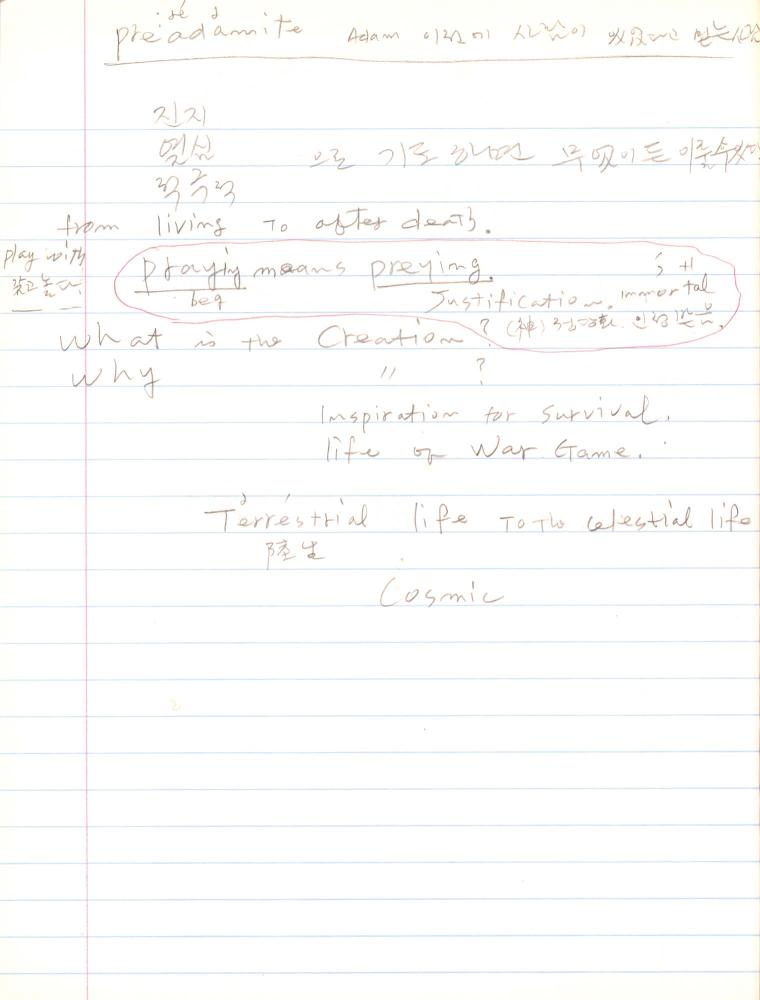 preadamite Adam 이전에 사람이 있었다고 믿는 사람
진지
열심 으로 기도 하면 무엇이든 이룰수있다
적극적
from living To after death.
play with
갖고놀다.
praying means preying.
beg Justification. immortal
What is the Creation ? (神)
Why 〃 ?
Inspiration for Survival.
life of War Game.
Terrestrial life To The celestial life
陸生
Cosmic